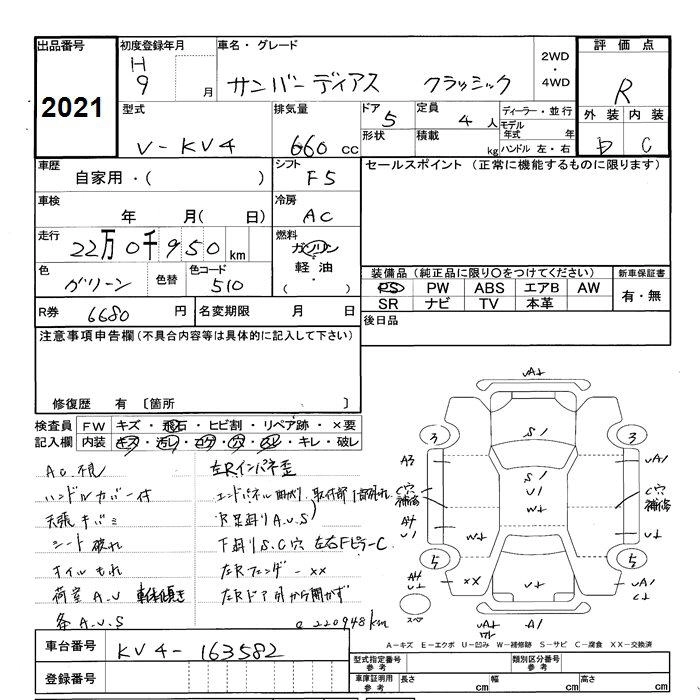 出品番号
2021
初度登録年月
H
9 月
車名・グレード
サンバーディアス クラッシック
2WD
・
4WD
評価点
R
外装 内装
D C
型式
V-KV4
排気量
660 cc
ドア
5
形状
定員
4 人
積載
kg
ディーラー・並行
モデル
年式 年
ハンドル 左・右
車歴
自家用・( )
シフト
F5
セールスポイント(正常に機能するものに限ります)
車検
年 月( 日)
冷房
AC
走行
22万0千950km
燃料
ガソリン
軽油
( ・ )
色
ガリーン
色替
色コード
510
装備品(純正品に限り○をつけてください)
PS PW ABS エアB AW
SR ナビ TV 本革
新車保証書
有・無
R券 6680 円
名変期限 月 日
後日品
注意事項申告欄(不具合内容等は具体的に記入して下さい)
修復歴 有 〔箇所 〕
検査員
記入欄
FW キズ・飛石・ヒビ割・リペア跡・×要
内装 キズ・汚レ・コゲ・穴・スレ・キレ・破レ
AC不良
ハンドルカバー付
天張キバミ
シート破れ
オイルもれ
荷室A.U 車体傾き
条A.U.S
左Rインパネ歪
エンドパネル曲がり
R足回りA.U.S
下回りS.C穴 左右FピラーC
左Rフェンダー××
左Rドア外から開かず
@220948km
UA+
3 3
S1
A3
UA1
C穴
補修
S1
U1
W+
C穴
補修
A4
U1
A1
U+
W+
5 5
××
A4
U+
U+
UA1
C+
スペア
UA+
W+
A1
A-キズ E-エクボ U-凹み W-補修跡 S-サビ C-腐食 XX-交換済
車台番号 KV4-163582
登録番号
型式指定番号
参考
類別区分番号
参考
車庫証明用
参考
長さ cm
幅 cm
高さ cm